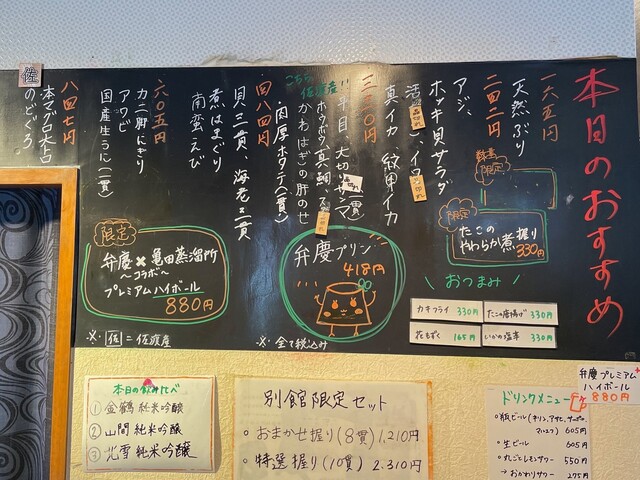 本日のおすすめ
一六五円
天然ぶり
二四二円
アジ、
ホッキ貝サラダ
活
品切れ
真イカ、紋甲イカ
三三〇円
平目、大切りサンマ
かわはぎの肝のせ
こちら佐渡産!!
四八四円
肉厚ホタテ(一貫)
貝三貫、海老三貫
煮はまぐり
南蛮えび
六〇五円
カニ脚にぎり
アワビ
国産生うに(一貫)
八四七円
本マグロ大占
佐
のどぐろ
数量限定
限定
たこの
やわらか煮握り
330円
弁慶プリン
418円
限定
弁慶×亀田蒸溜所
〜コラボ〜
プレミアムハイボール
880円
※佐=佐渡産
※全て税込み
\ おつまみ /
カキフライ 330円
たこの唐揚げ 330円
花もずく 165円
いかの塩辛 330円
本日の飲み比べ
① 金鶴 純米吟醸
② 山間 純米吟醸
③ 北雪 純米吟醸
別館限定セット
おまかせ握り(8貫)1,210円
特選握り(10貫)2,310円
弁慶プレミアム
ハイボール
880円
ドリンクメニュー
瓶ビール(キリン,アサヒ,サッポロ
605円
生ビール 605円
丸ごとレモンサワー 550円
→おかわりサワー 275円